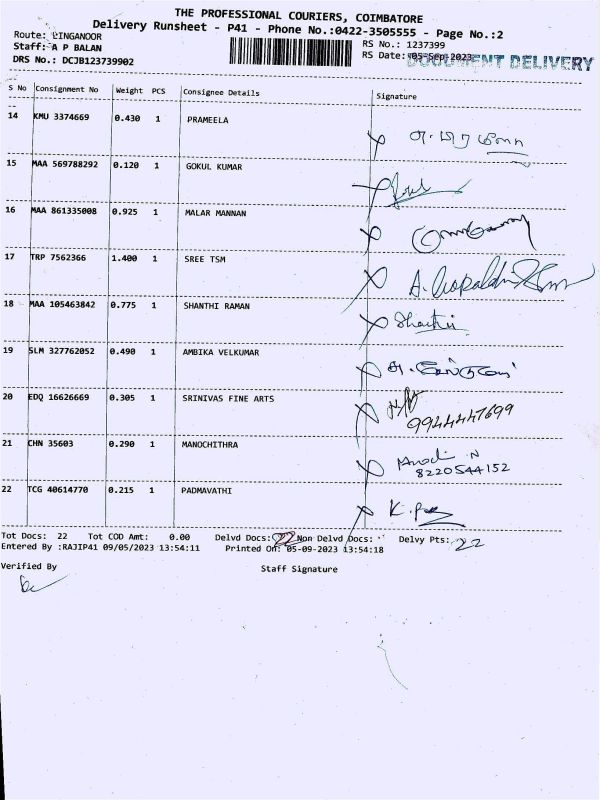 THE PROFESSIONAL COURIERS, COIMBATORE
Delivery Runsheet - P41 - Phone No.:0422-3505555 - Page No.:2
Route: LINGANOOR
RS No.: 1237399
Staff: A P BALAN
RS Date: 05-Sep-2023
DOCUMENT DELIVERY
DRS No.: DCJB123739902
S No Consignment No Weight PCS Consignee Details Signature
14 KMU 3374669 0.430 1 PRAMEELA
15 MAA 569788292 0.120 1 GOKUL KUMAR
16 MAA 861335008 0.925 1 MALAR MANNAN
17 TRP 7562366 1.400 1 SREE TSM
18 MAA 105463842 0.775 1 SHANTHI RAMAN Shanthi
19 SLM 327762052 0.490 1 AMBIKA VELKUMAR
20 EDQ 16626669 0.305 1 SRINIVAS FINE ARTS
9944447699
21 CHN 35603 0.290 1 MANOCHITHRA
8220544152
22 TCG 40614770 0.215 1 PADMAVATHI
Tot Docs: 22 Tot COD Amt: 0.00 Delvd Docs: 22 Non Delvd Docs: Delvy Pts: 22
Entered By :RAJIP41 09/05/2023 13:54:11 Printed On: 05-09-2023 13:54:18
Verified By Staff Signature